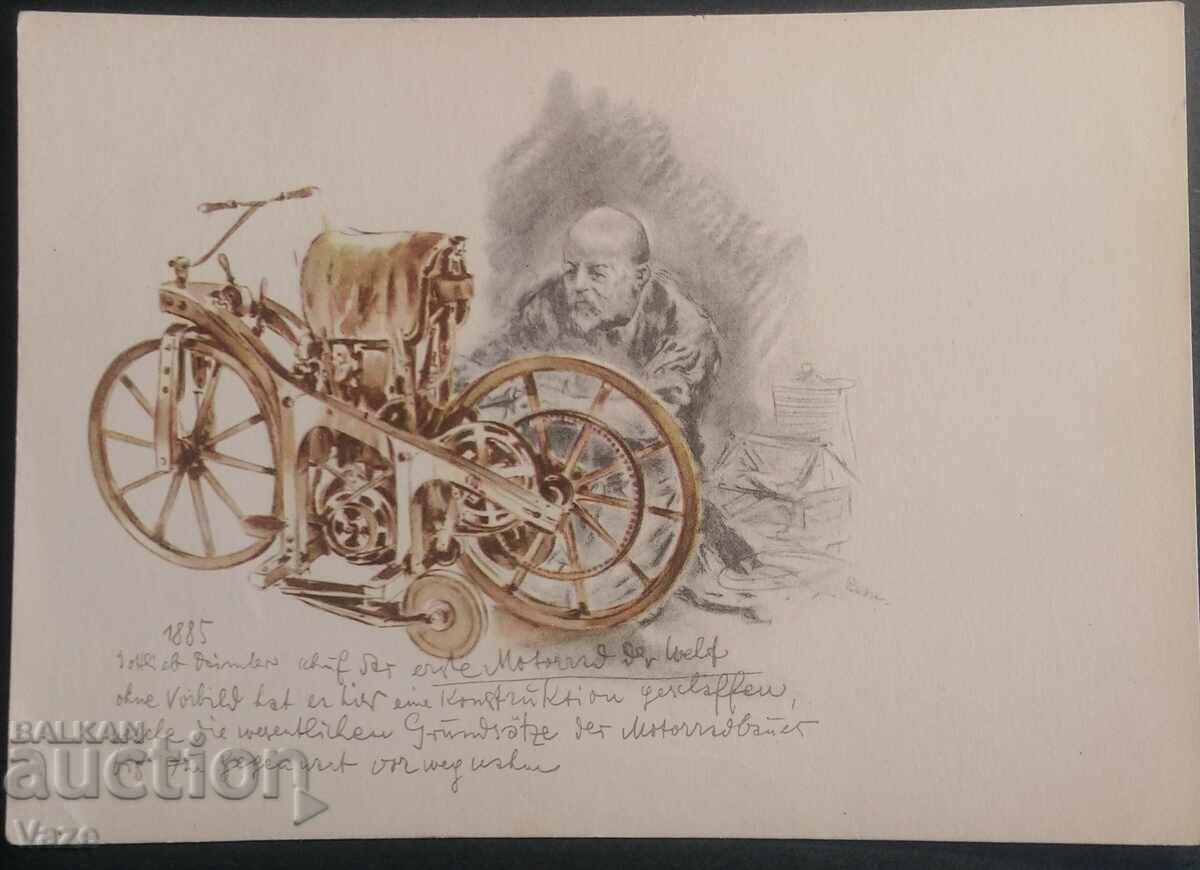 1885
Gottlieb Daimler schuf das erste Motorrad der Welt
ohne Vorbild hat er hier eine Konstruktion geschaffen,
welche die wesentlichen Grundsätze des Motorradbaues
bis zur Gegenwart vorwegnahm
BALKAN
auction
Vaze